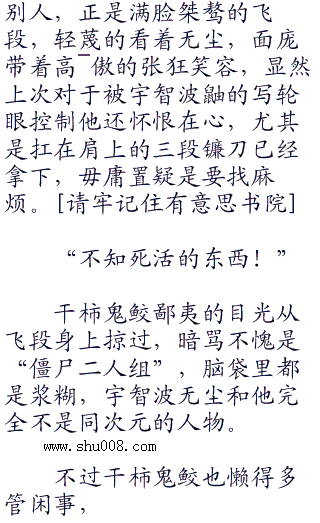 别人，正是满脸桀骜的飞
段，轻蔑的看着无尘，面庞
带着高¯傲的张狂笑容，显然
上次对于被宇智波鼬的写轮
眼控制他还怀恨在心，尤其
是扛在肩上的三段镰刀已经
拿下，毋庸置疑是要找麻
烦。[请牢记住有意思书院]
“不知死活的东西！”
干柿鬼鲛鄙夷的目光从
飞段身上掠过，暗骂不愧是
“僵尸二人组”，脑袋里都
是浆糊，宇智波无尘和他完
全不是同次元的人物。
www.shu008.com
不过干柿鬼鲛也懒得多
管闲事，